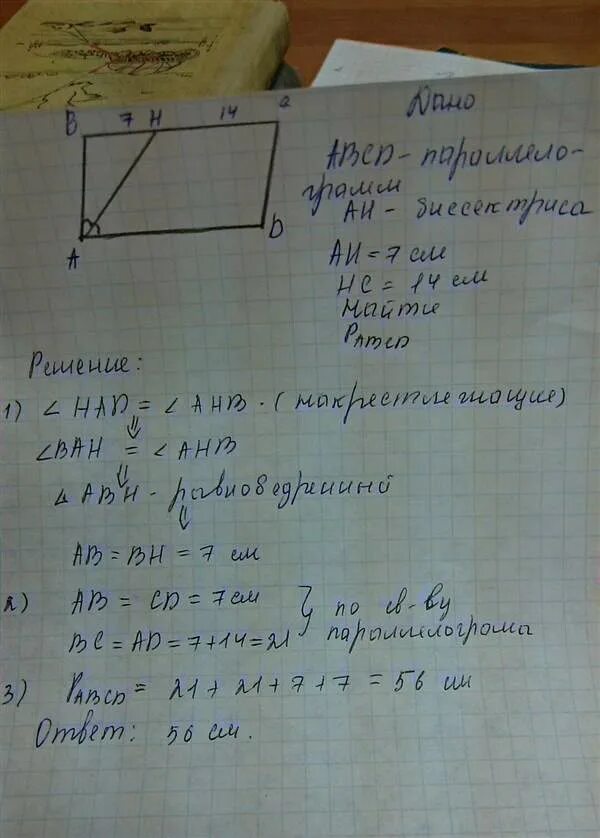 B 7 H 14 a
A D
Дано
ABCD - параллело-
грамм
AH - биссектриса
AH = 7 см
HC = 14 см
Найти
PABCD
Решение:
1) ∠ HAD = ∠ AHB. (накрестлежащие)
⇓
∠BAH = ∠ AHB
⇓
△ ABH - равнобедренный
⇓
AB = BH = 7 см
2) AB = CD = 7 см } по св-ву
BC = AD = 7+14 = 21 параллелограма
3) PABCD = 21 + 21 + 7 + 7 = 56 см
Ответ: 56 см.